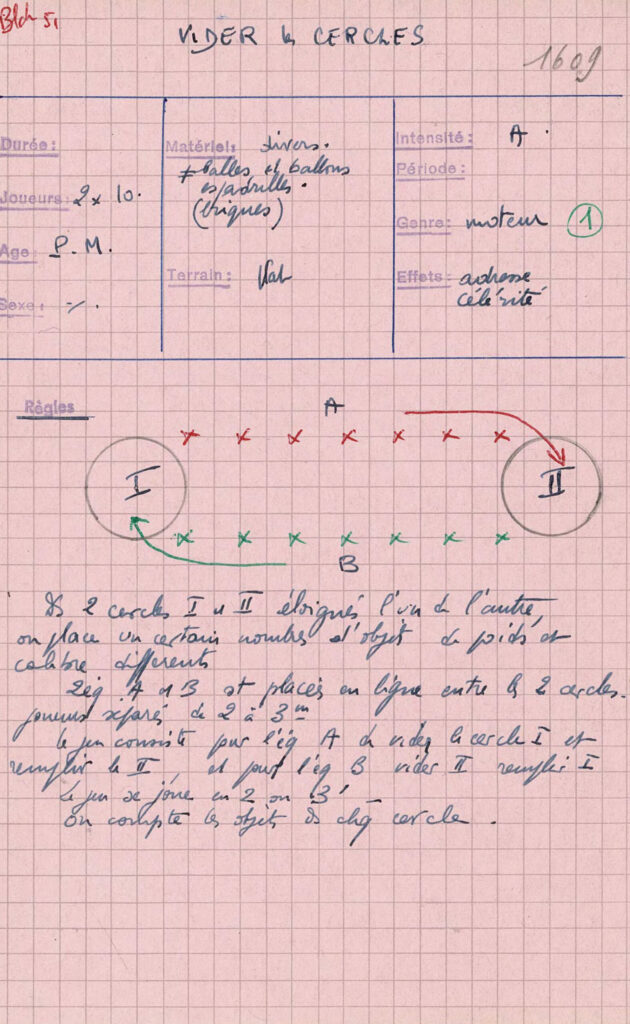 Blch 51
VIDER les CERCLES
1609
Durée:
Joueurs: 2 x 10.
Age P. M.
Sexe: -/.
Matériel: divers.
≠ balles et ballons
espadrilles.
(briques)
Terrain:
Intensité: A.
Période:
Genre: moteur 1
Effets: adresse
célérité
Règles
A
I
II
B
Ds 2 cercles I et II éloignés l'un de l'autre,
on place un certain nombres d'objet de poids et
calibre differents
2 éq. A et B st placés en ligne entre les 2 cercles.
joueurs séparés de 2 à 3 m
Le jeu consiste pour l'éq A de vider le cercle I et
remplir le II et pour l'éq B vider II remplir I
Le jeu se joue en 2 ou 3'
On compte les objets ds chq cercle.